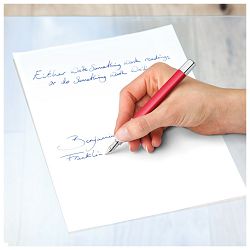 Either write something worth reading
or do something worth writing
Benjamin
Franklin